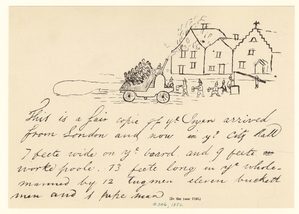 This is a fair copie of yᵉ Ingen arrived
from London and now in yᵉ City hall
7 feete wide on yᵉ board and 9 feete in
worke poole. 13 feete long in yᵉ whole
manned by 12 tugmen eleven buckett
men and 1 pipe man
(In the year 1731.)